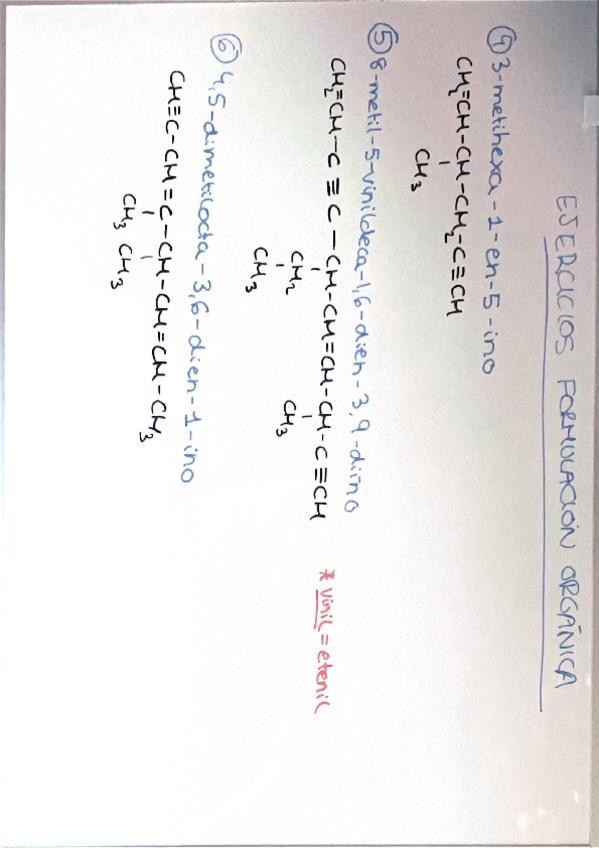 EJERCICIOS FORMULACIÓN ORGÁNICA
④ 3-metihexa-1-en-5-ino
CH₂=CH-CH-CH₂-C≡CH
CH₃
⑤ 8-metil-5-vinildeca-1,6-dien-3,9-diino
CH₂=CH-C≡C-CH-CH=CH-CH-C≡CH
CH₂ CH₃
CH₃
* vinil = etenil
⑥ 4,5-dimetilocta-3,6-dien-1-ino
CH≡C-CH=C-CH-CH=CH-CH₃
CH₃ CH₃